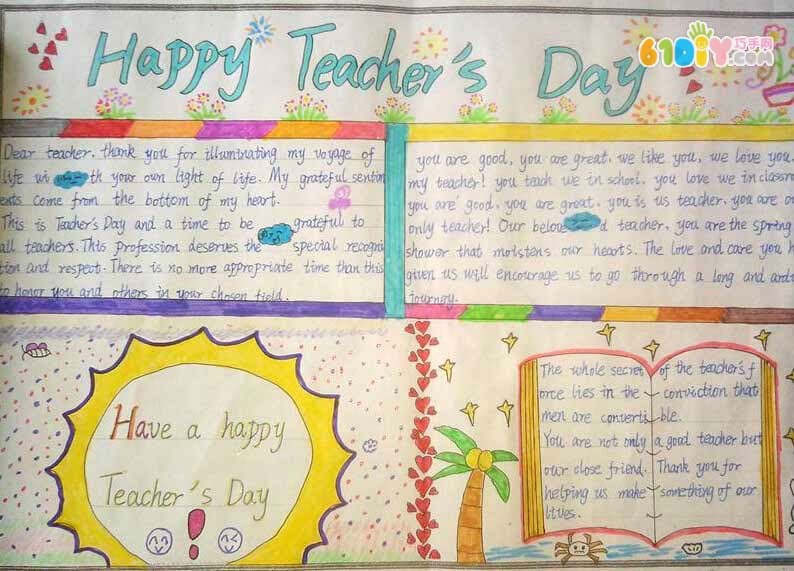 Happy Teacher's Day
61DIY巧手网
.com
Dear teacher, thank you for illuminating my voyage of
life wi th your own light of life. My grateful sentim
ents come from the bottom of my heart.
This is Teacher's Day and a time to be grateful to
all teachers. This profession deserves the special recogni
tion and respect. There is no more appropriate time than this
to honor you and others in your chosen field.
you are good, you are great, we like you, we love you,
my teacher! you teach we in school, you love we in classro
you are good, you are great, you is us teacher, you are o
only teacher! Our belov d teacher, you are the spring
shower that moistens our hearts. The love and care you h
given us will encourage us to go through a long and ard
journey.
Have a happy
Teacher's Day
!
The whole secret of the teacher's f
orce lies in the conviction that
men are converti ble.
You are not only a good teacher but
our close friend. Thank you for
helping us make something of our
lives.